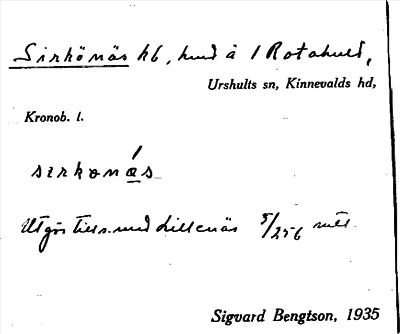 Sirkönäs hb, hmd å 1 Rotahult,
Urshults sn, Kinnevalds hd,
Kronob. l.
sirkonas
Utgör tills. med Lillenäs 5/256 mtl
Sigvard Bengtson, 1935